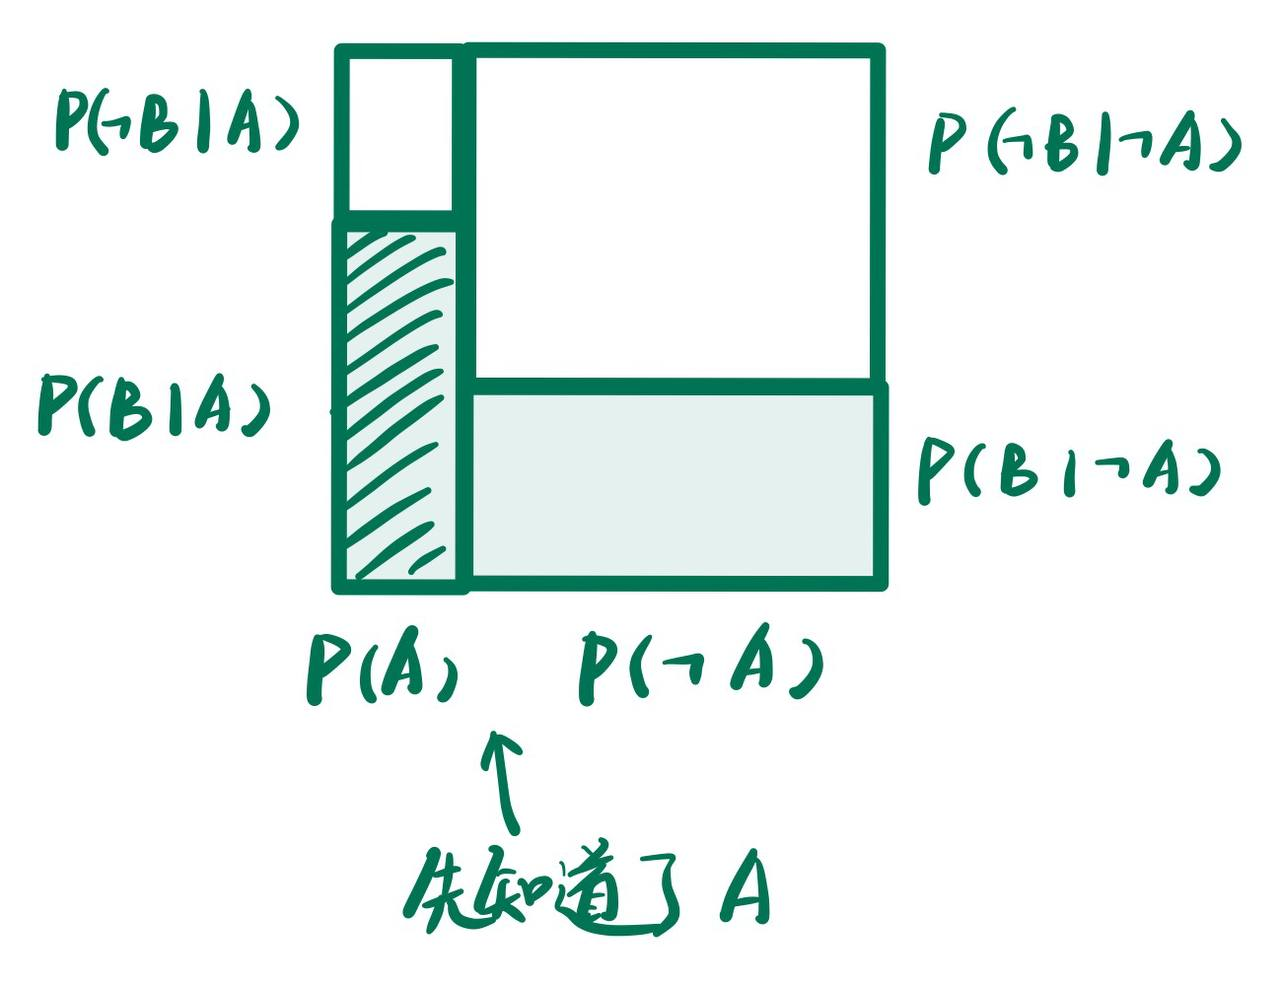 P(¬B|A)
P(¬B|¬A)
P(B|A)
P(B|¬A)
P(A)
P(¬A)
先知道了 A